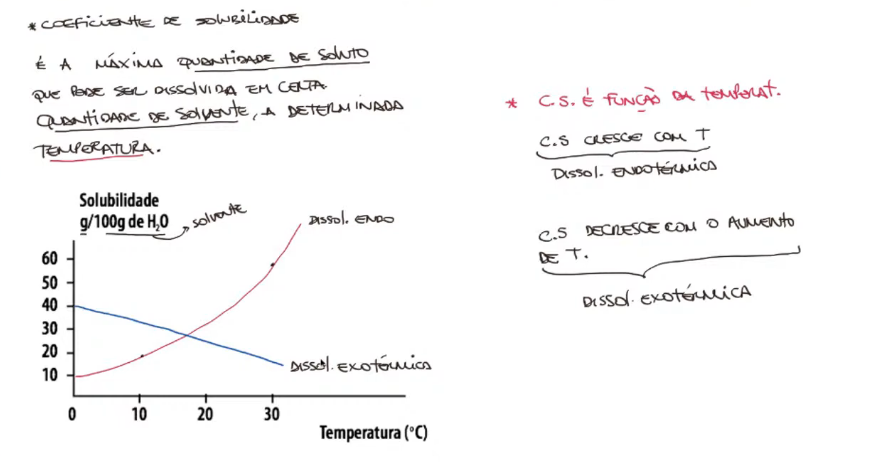 * COEFICIENTE DE SOLUBILIDADE
É A MÁXIMA QUANTIDADE DE SOLUTO
QUE PODE SER DISSOLVIDA EM CERTA
QUANTIDADE DE SOLVENTE, A DETERMINADA
TEMPERATURA.
* C.S. É FUNÇÃO DA TEMPERAT.
C.S CRESCE COM T
DISSOL. ENDOTÉRMICA
C.S DECRESCE COM O AUMENTO
DE T.
DISSOL. EXOTÉRMICA
Solubilidade
g/100g de H₂O
SOLVENTE
DISSOL. ENDO
60
50
40
30
20
10
DISSOL. EXOTÉRMICA
0 10 20 30
Temperatura (°C)